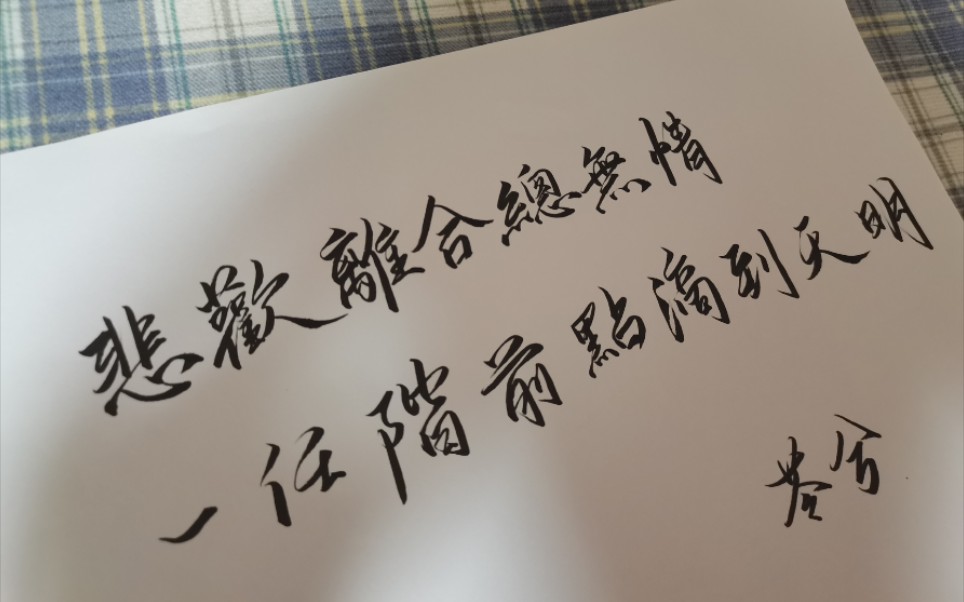 悲歡離合總無情
一任階前點滴到天明